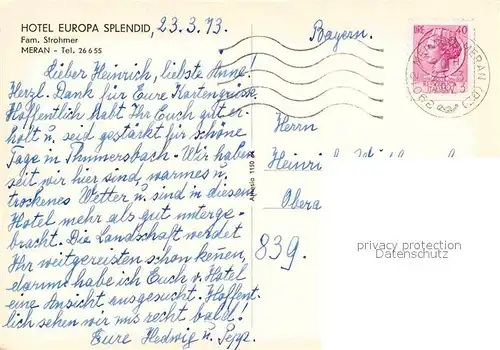 HOTEL EUROPA SPLENDID, 23.3.73.
Fam. Strohmer
MERAN - Tel. 26655
Lieber Heinrich, liebste Anne!
Herzl. Dank für Eure Kartengrüsse.
Hoffentlich habt Ihr Euch gut er-
holt u. seid gestärkt für schöne
Tage in Thumersbach. Wir haben
seit wir hier sind, warmes u.
trockenes Wetter u. sind in diesem
Hotel mehr als gut unterge-
bracht. Die Landschaft werdet
Ihr weitgereisten schon kennen,
darum habe ich Euch v. Hotel
eine Ansicht ausgesucht. Hoffent-
lich sehen wir uns recht bald!
Eure Hedwig u. Sepp.
1150
Bayern.
LIRE 40
MERAN (BZ)
Herrn
Heinri
Obera
839.
privacy protection
Datenschutz